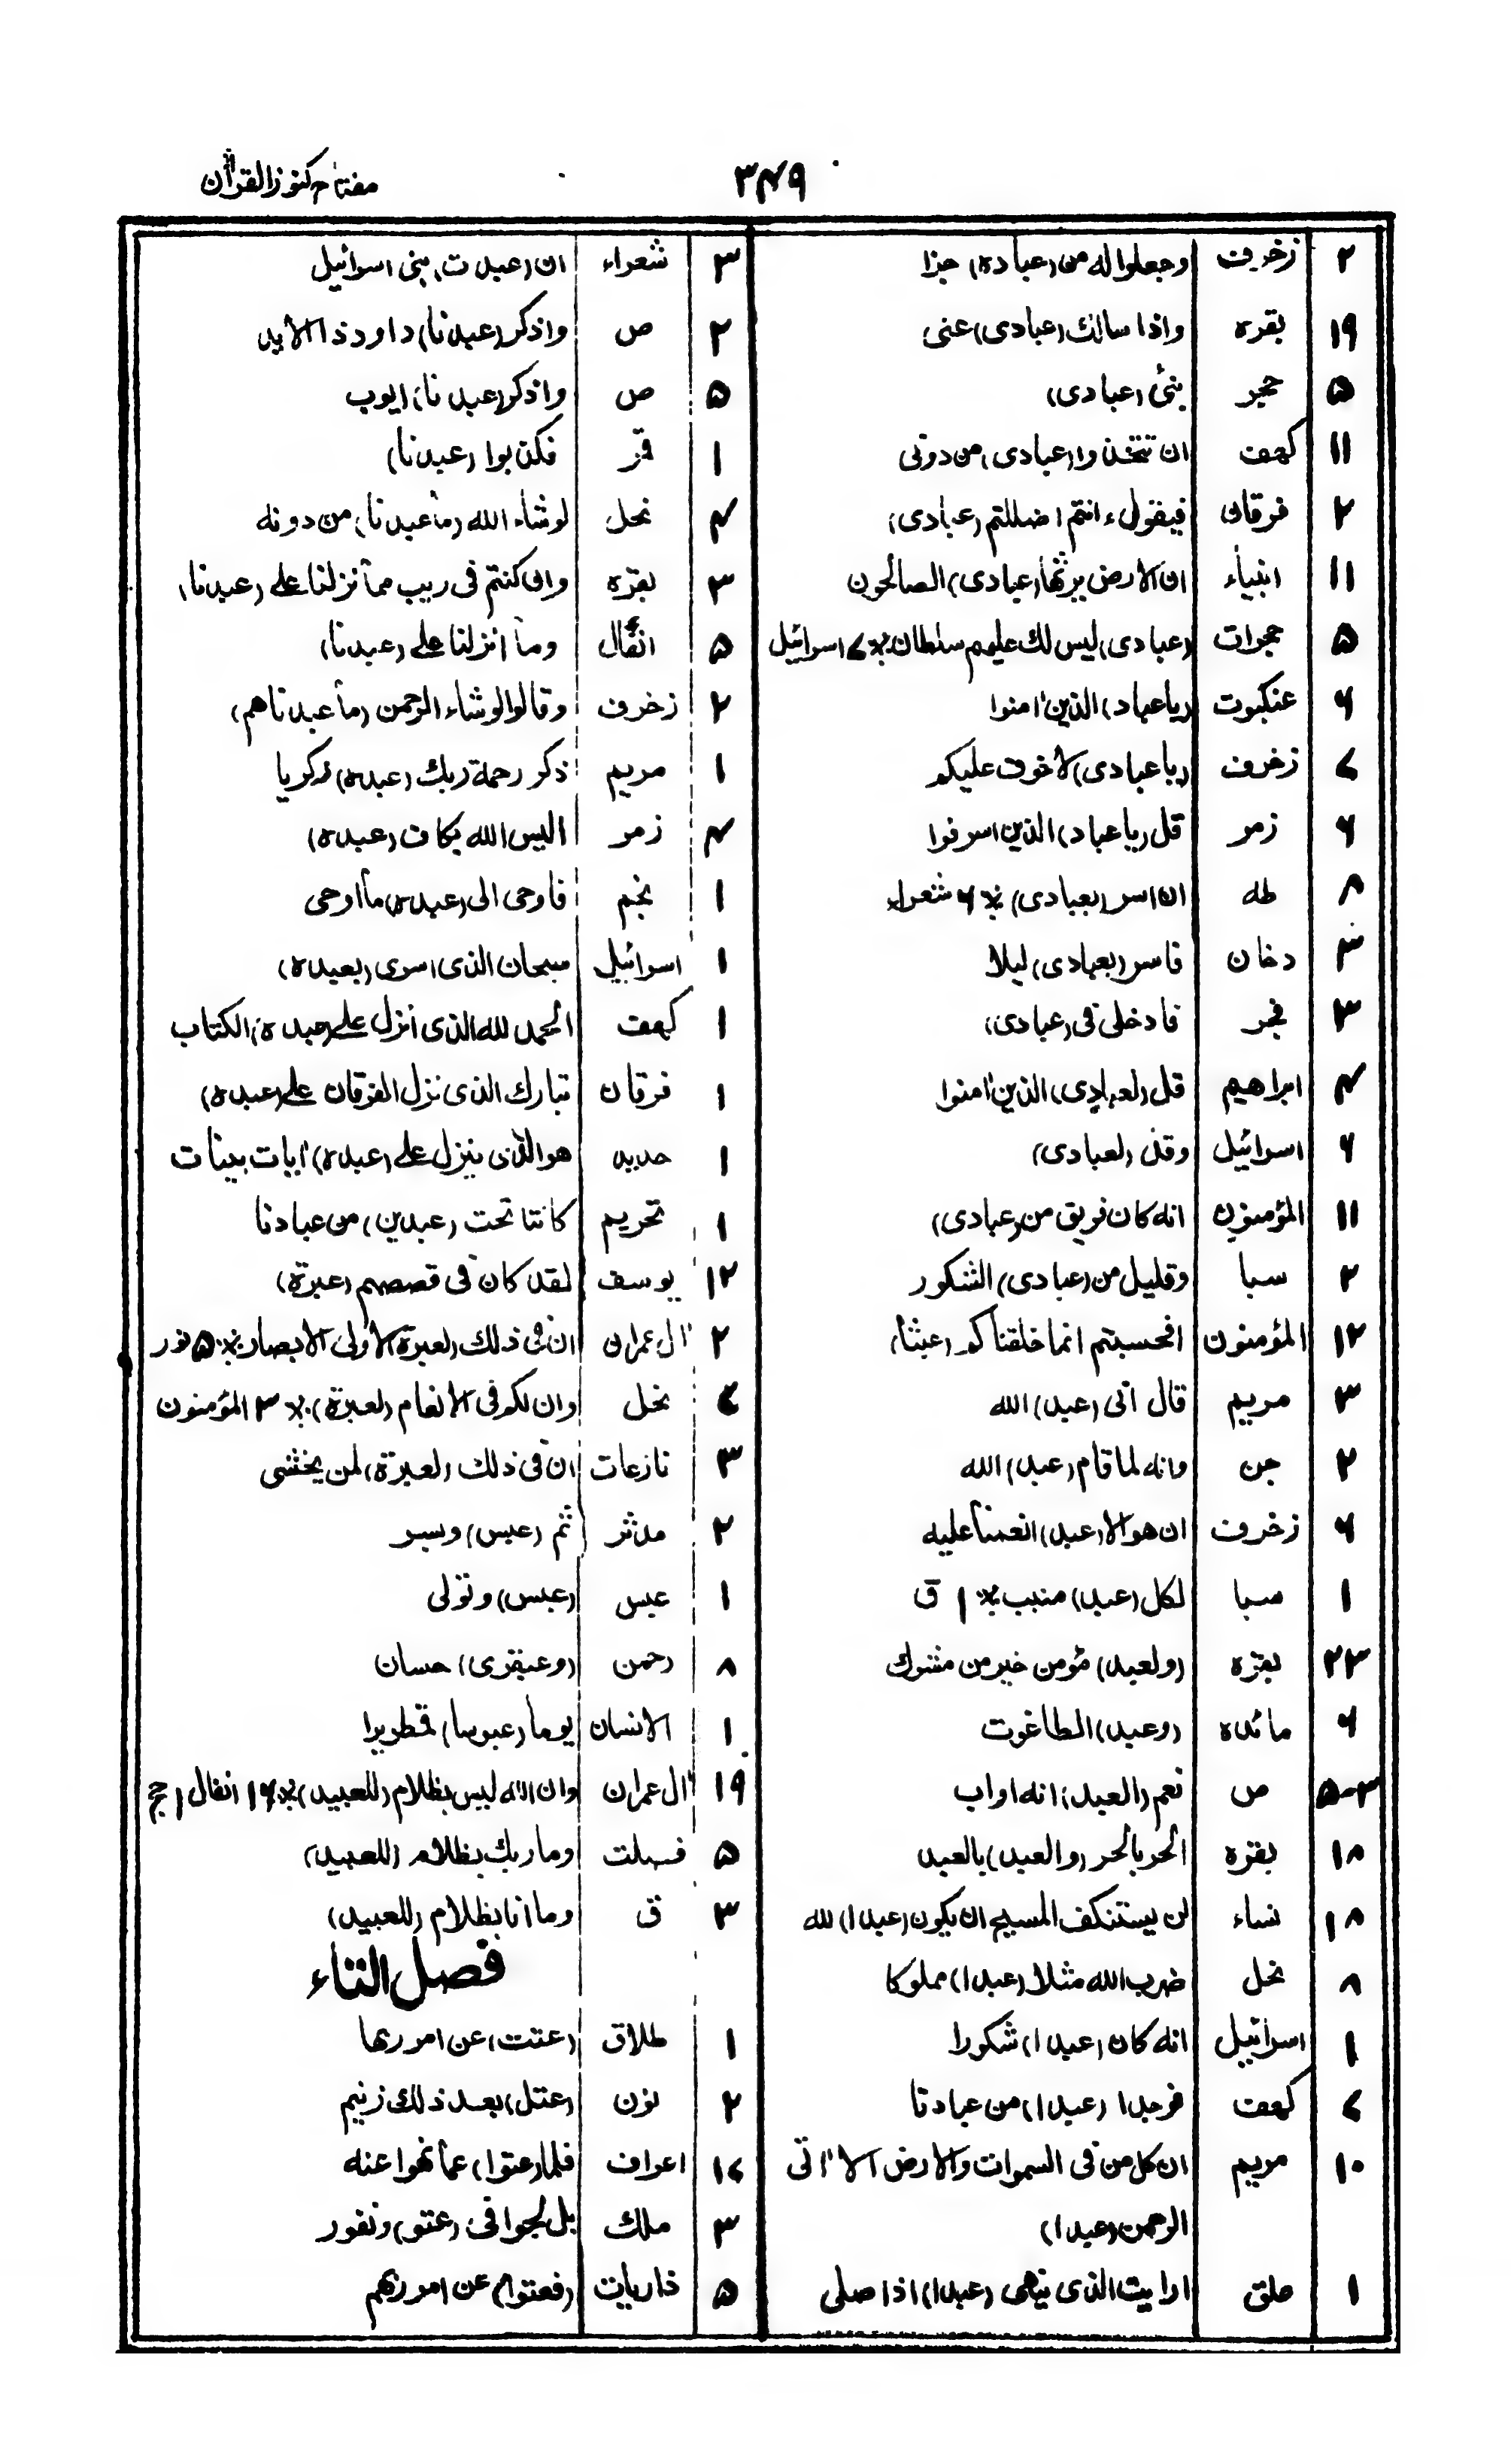 مفتاح کنوز القرآن
۳۴۹
۲ زخرف وجعلوا له من (عباده) جزا
۱۹ بقره واذا سالك (عبادی) عنی
۵ حجر نبئ (عبادی)
۱۱ کهف ان تتخذوا (عبادی) من دونی
۲ فرقان فیقول ءانتم اضللتم (عبادی)
۱۱ انبیاء ان الارض یرثها (عبادی) الصالحون
۵ حجرات (عبادی) لیس لك علیهم سلطان ٪ ۷ اسرائیل
۶ عنکبوت (یاعباد) الذین امنوا
۷ زخرف (یاعبادی) لاخوف علیکم
۶ زمر قل (یاعباد) الذین اسرفوا
۸ طه ان اسر (بعبادی) ٪ ۴ شعراء
دخان فاسر (بعبادی) لیلا
۳ فجر فادخلی فی (عبادی)
۴ ابراهیم قل (لعبادی) الذین امنوا
۶ اسرائیل وقل (لعبادی)
۱۱ المؤمنون انه کان فریق من (عبادی)
۲ سبا وقلیل من (عبادی) الشکور
۱۲ المؤمنون افحسبتم انما خلقناکم (عبثا)
۳ مریم قال انی (عبد) الله
۲ جن وانه لما قام (عبد) الله
۶ زخرف ان هو الا (عبد) انعمنا علیه
۱ سبا لکل (عبد) منیب ٪ ۱ ق
۲۳ بقره (ولعبد) مؤمن خیر من مشرك
۶ مائده (وعبد) الطاغوت
۳-۵ ص نعم (العبد) انه اواب
۱۸ بقره الحر بالحر (والعبد) بالعبد
۱۸ نساء لن یستنکف المسیح ان یکون (عبدا) لله
۸ نحل ضرب الله مثلا (عبدا) مملوکا
۱ اسرائیل انه کان (عبدا) شکورا
۷ کهف فوجدا (عبدا) من عبادنا
۱۰ مریم ان کل من فی السموات والارض الا اتی
الرحمن (عبدا)
۱ علق ارایت الذی ینهی (عبدا) اذا صلی
۳ شعراء ان (عبدت) بنی اسرائیل
۲ ص واذکر (عبدنا) داود ذا الاید
۵ ص واذکر (عبدنا) ایوب
۱ قمر فکذبوا (عبدنا)
۴ نحل لوشاء الله (ما عبدنا) من دونه
۳ بقره وان کنتم فی ریب مما نزلنا علی (عبدنا)
۵ انفال وما انزلنا علی (عبدنا)
۲ زخرف وقالوا لوشاء الرحمن (ما عبدناهم)
۱ مریم ذکر رحمة ربك (عبده) زکریا
۴ زمر الیس الله بکاف (عبده)
۱ نجم فاوحی الی (عبده) ما اوحی
۱ اسرائیل سبحان الذی اسری (بعبده)
۱ کهف الحمد لله الذی انزل علی (عبده) الکتاب
۱ فرقان تبارك الذی نزل الفرقان علی (عبده)
۱ حدید هو الذی ینزل علی (عبده) ایات بینات
۱ تحریم کانتا تحت (عبدین) من عبادنا
۱۲ یوسف لقد کان فی قصصهم (عبرة)
۲ ال عمران ان فی ذلك (لعبرة) لاولی الابصار ٪ ۵ نور
۷ نحل وان لکم فی الانعام (لعبرة) ٪ ۳ المؤمنون
۳ نازعات ان فی ذلك (لعبرة) لمن یخشی
۲ مدثر ثم (عبس) وبسر
۱ عبس (عبس) وتولی
۸ رحمن (وعبقری) حسان
۱ الانسان یوما (عبوسا) قمطریرا
۱۹ ال عمران وان الله لیس بظلام (للعبید) ٪ ۶ انفال ۱ حج
۵ فصلت وما ربك بظلام (للعبید)
۳ ق وما انا بظلام (للعبید)
فصل التاء
۱ طلاق (عتت) عن امر ربها
۲ نون (عتل) بعد ذلك زنیم
۱۷ اعراف فلما (عتوا) عما نهوا عنه
۳ ملك بل لجوا فی (عتو) ونفور
۵ ذاریات (فعتوا) عن امر ربهم